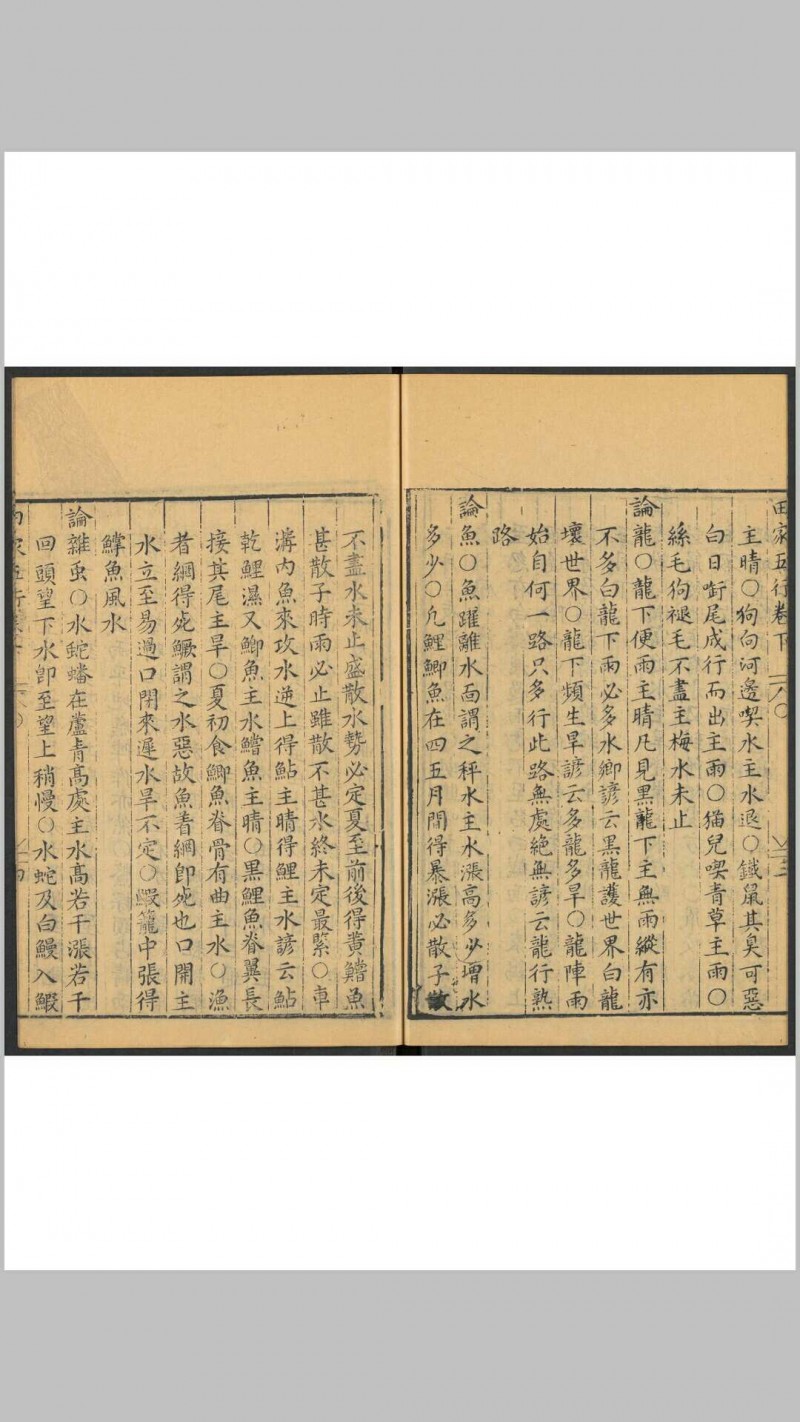 田家五行卷下
主晴○狗向河邊喫水主水退○鐵鼠其臭可惡
白日銜尾成行而出主雨○猫兒喫青草主雨○
絲毛狗褪毛不盡主梅水未止
論龍○龍下便雨主晴凡見黑龍下主無雨縱有亦
不多白龍下雨必多水鄉諺云黑龍護世界白龍
壞世界○龍下頻生旱諺云多龍多旱○龍陣雨
始自何一路只多行此路無處絶無諺云龍行熟
路
論魚○魚躍離水面謂之秤水主水漲高多少增水
多少○凡鯉鯽魚在四五月間得暴漲必散子散
不盡水未止盛散水勢必定夏至前後得黄鱨魚
甚散子時雨必止雖散不甚水終未定最緊○車
溝内魚來攻水逆上得鮎主晴得鯉主水諺云鮎
乾鯉濕又鯽魚主水鱨魚主晴○黑鯉魚脊翼長
接其尾主旱○夏初食鯽魚脊骨有曲主水○漁
者網得死鱖謂之水惡故魚着網即死也口開主
水立至易過口閉來遲水旱不定○鰕籠中張得
鱓魚風水
論雜虫○水蛇蟠在蘆青高處主水高若干漲若干
回頭望下水即至望上稍慢○水蛇及白鰻入鰕